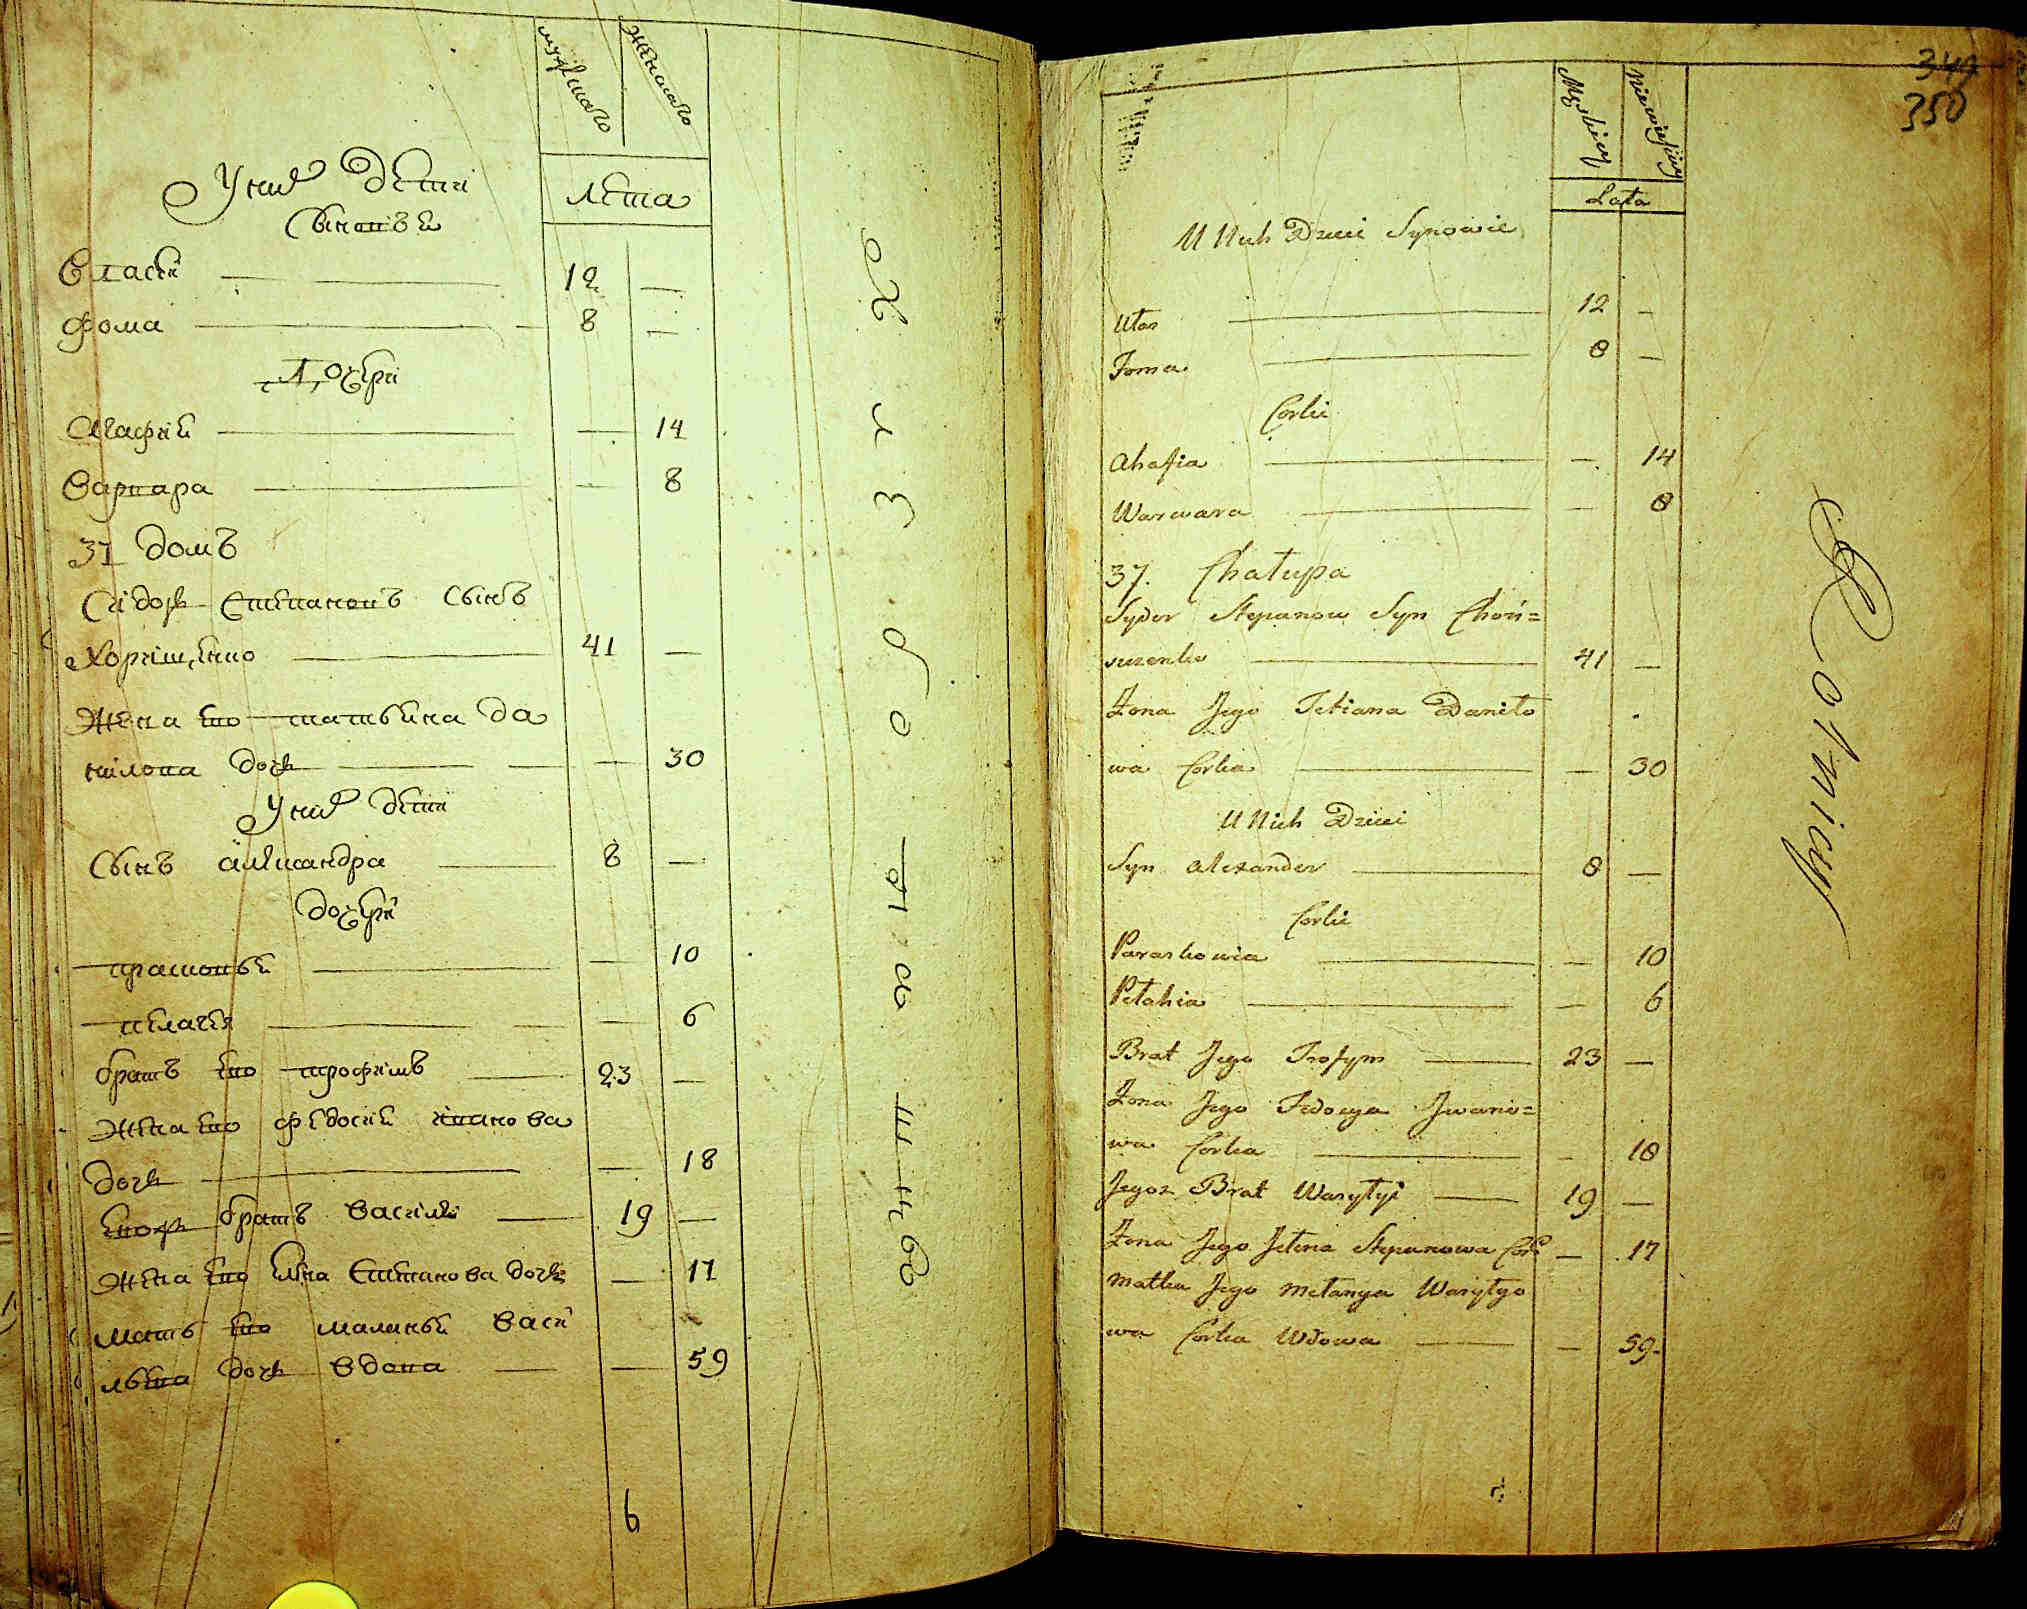 мужскаго
женскаго
лета
У них дети
Сыновя
Власий 12 —
Фома 8 —
Дочери
Агафия — 14
Варвара — 8
37 домъ
Сидоръ Степановъ Сынъ
41 —
Жена его татьяна да
нилова дочь — 30
У них дети
Сынъ александра 8 —
дочери
прасковья — 10
пелагея — 6
братъ его трофимъ 23 —
Жена его федосия иванова
дочь — 18
егожъ братъ Василий 19 —
жена его елена Степанова дочь — 17
мать его маланья Васи
льева дочь вдова — 59
6
349
350
Męskiey
Niewieściey
Lata
U Nich Dzieci Synowie
12 —
Foma 8 —
Corki
Ahafia — 14
Warwara — 8
37. Chałupa
Sydor Stepanow Syn
41 —
Żona Jego Tetiana Daniło
wa Corka — 30
U Nich Dzieci
Syn Alexander 8 —
Corki
Paraskowia — 10
Pełahia — 6
Brat Jego Trofym 23 —
Żona Jego Fedosya Jwano=
wa Corka — 18
Jegoz Brat Wasylyi 19 —
Żona Jego Jelena Stepanowa Cor: — 17
Matka Jego Melanya Wasylyo
wa Corka Wdowa — 59
Rolnicy